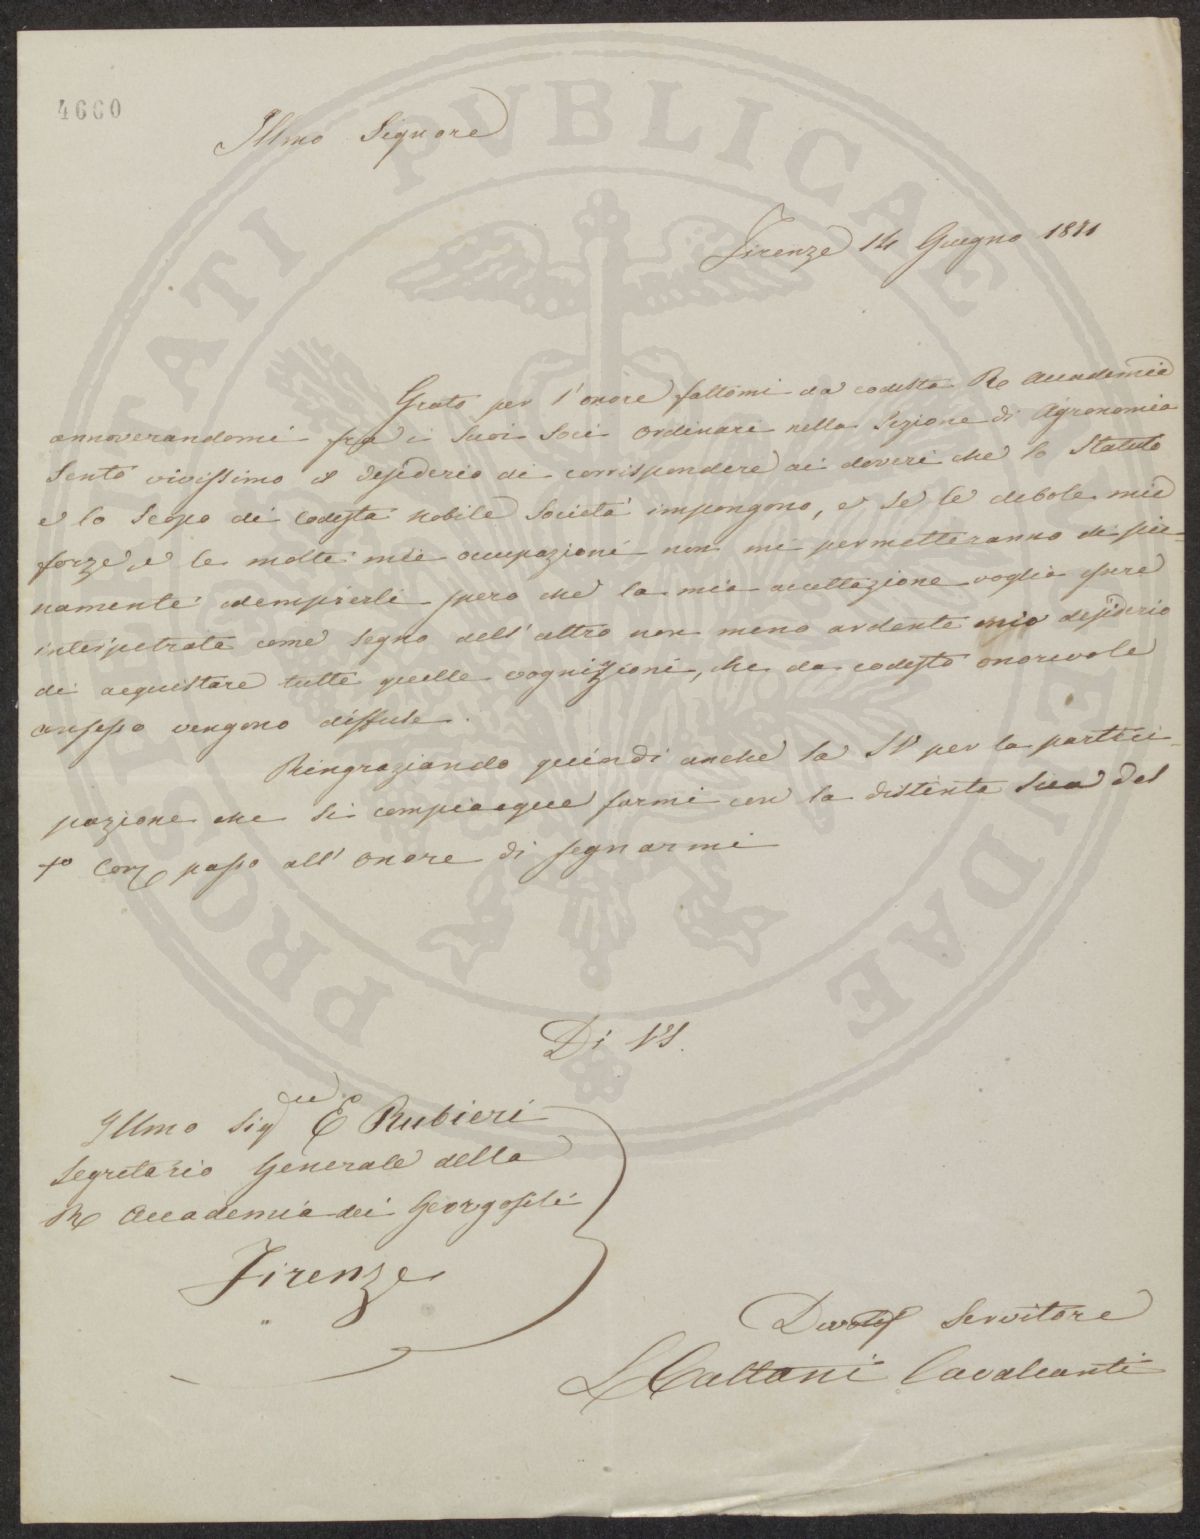 4660
Illmo Signore
Firenze 14 Giugno 1871
Grato per l'onore fattomi da codesta R Accademia
annoverandomi fra i suoi Soci Ordinari nella Sezione di Agronomia
sento vivissimo il desiderio di corrispondere ai doveri che lo Statuto
e lo scopo di codesta nobile Società impongono, e se le debole mie
forze, e le molte mie occupazioni non mi permetteranno di pie-
namente adempierli spero che la mia accettazione voglia essere
interpetrata come segno dell'altro non meno ardente mio desiderio
di acquistare tutte quelle cognizzioni, che da codesto onorevole
consesso vengono diffuse.
Ringraziando quindi anche la SV per la parteci-
pazione che si compiacque farmi con la distinta sua del
Corr passo all'onore di segnarmi
Di VS.
Illmo Sig E Rubieri
Segretario Generale della
R Accademia dei Georgofili
Firenze
Devot Servitore
L Cattani Cavalcanti
PROSPERITATI PUBLICAE AUGENDAE